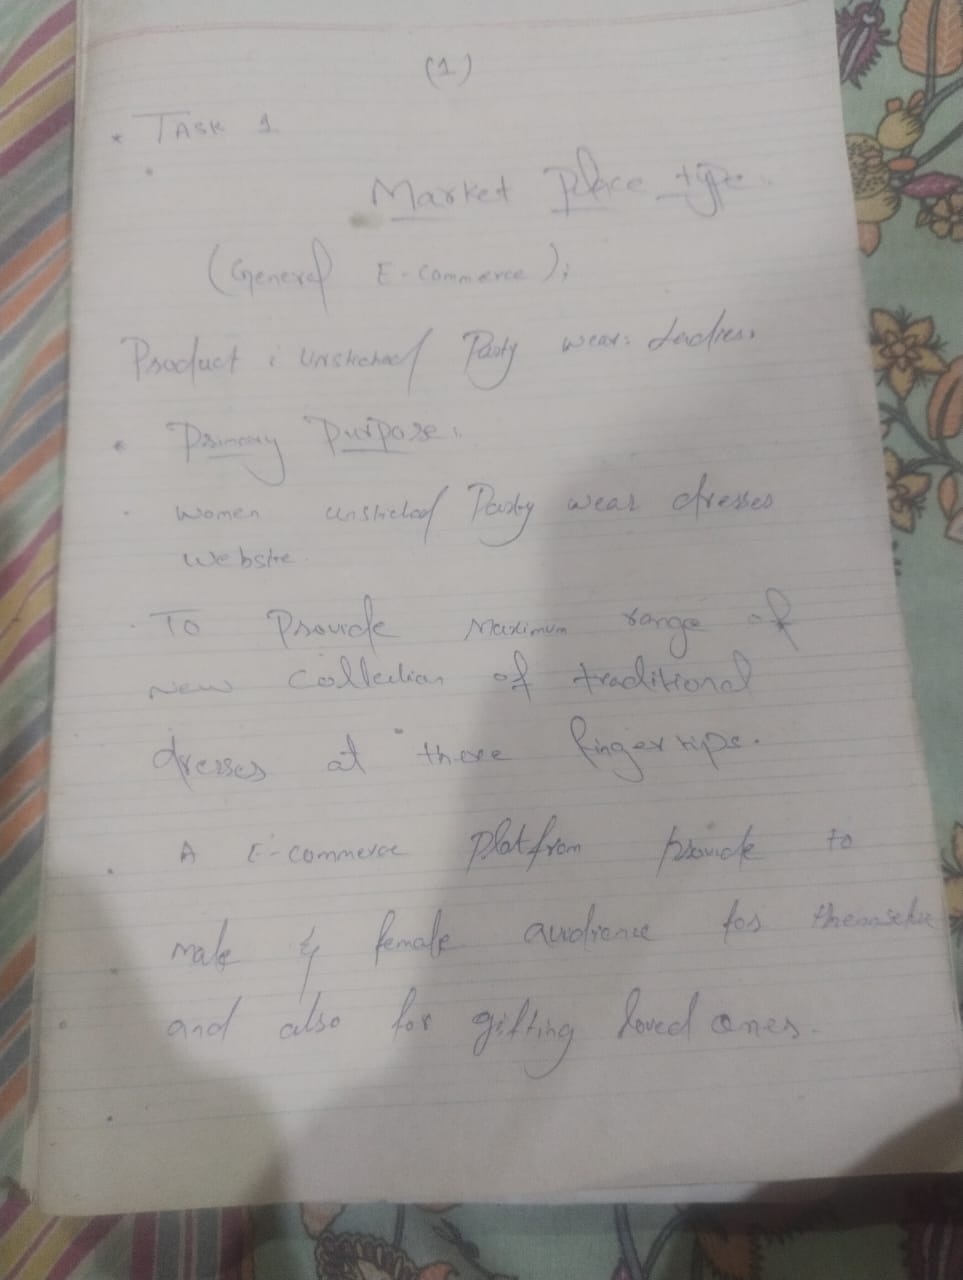 (1)
* TASK 1
Market Place type:
(General E-Commerce);
Product : Unstiched Party wear: Ladies.
* Primary Purpose:
· women unstiched Party wear dresses
website.
· To Provide Maximum range of
New Collection of traditional
dresses at there fingertips.
· A E-commerce Platfrom provide to
male & female audience for themselve
and also for gifting loved ones.